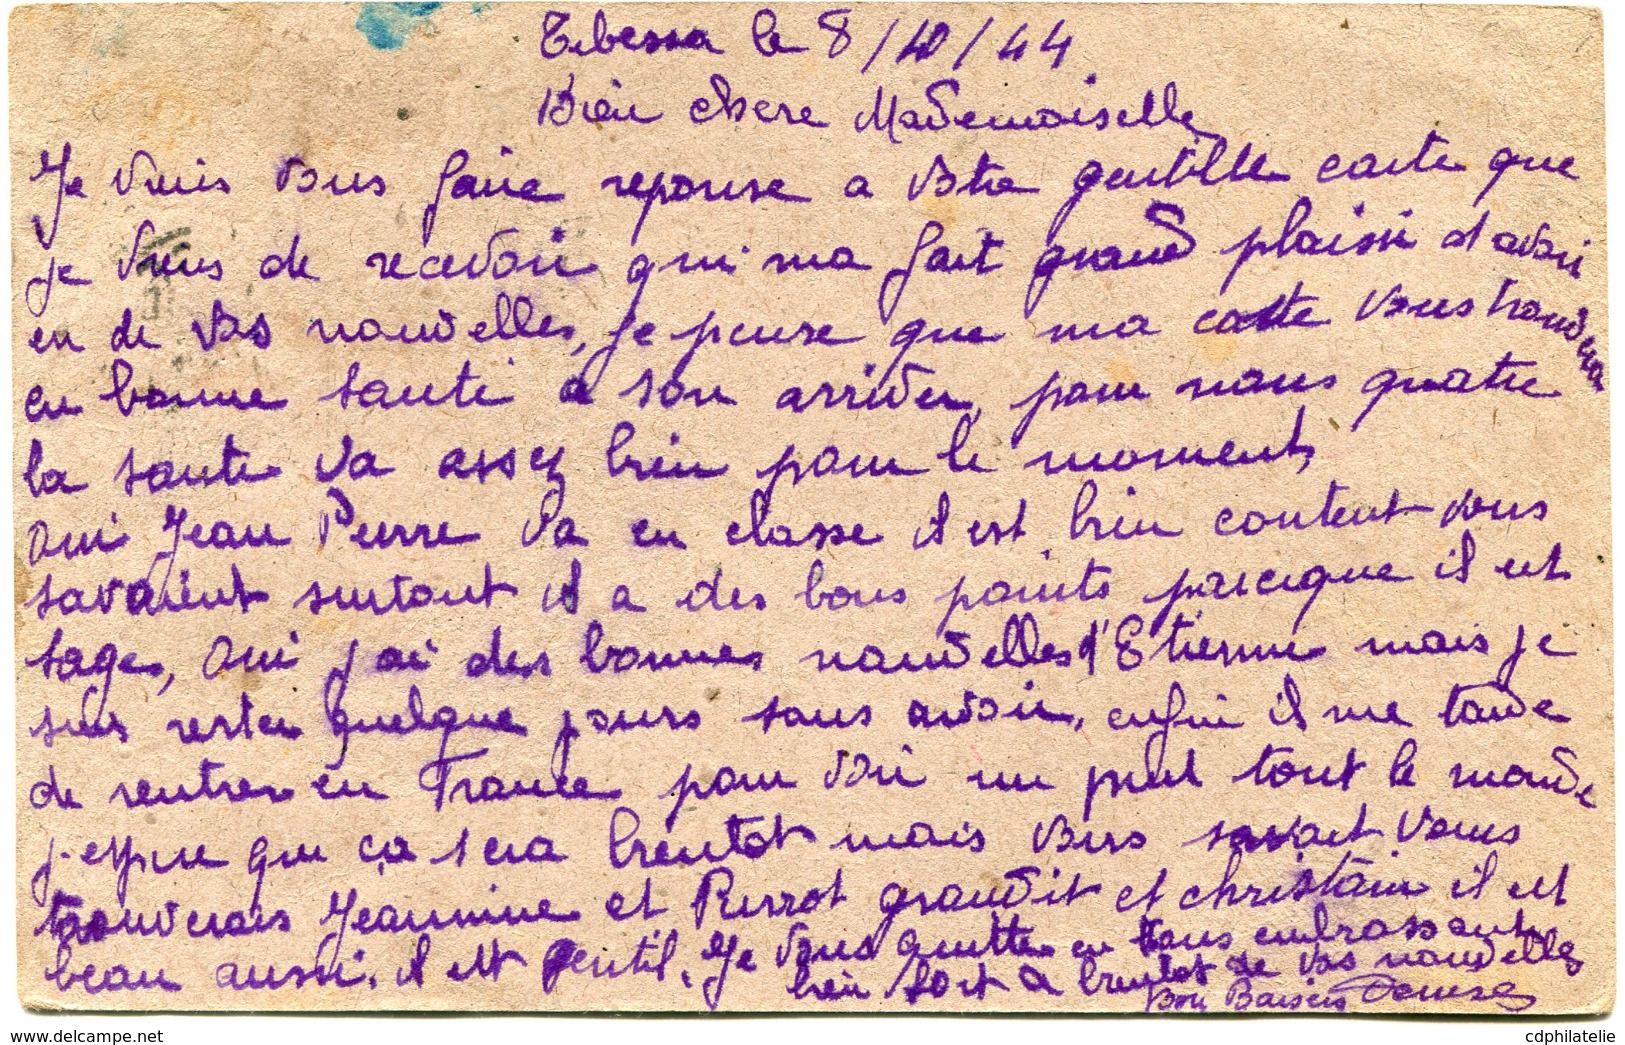 Tebessa le 8/10/44
Bien chere Mademoiselle
Je viens vous faire reponse a votre gentille carte que
je viens de recevoir qui ma fait grand plaisir d'avoir
eu de vos nouvelles, je pense que ma carte vous trouvera
en bonne santé a son arriver, pour nous quatre
la santé va assez bien pour le moment,
oui Jean Pierre va en classe il est bien content vous
savaient surtout il a des bons points parceque il est
sage, oui j'ai des bonnes nouvelles d'Etienne mais je
suis rester quelque jours sans avoir, enfin il me tarde
de rentrer en France pour voir un peut tout le monde
j'espere que ça sera bientot mais vous savait vous
trouverais Jeannine et Pierrot grandit et christain il est
beau aussi, il est gentil, Je vous quitte en vous embrassant
bien fort a bientot de vos nouvelles
Bon Baisers Denise
www.delcampe.net
cdphilatelie